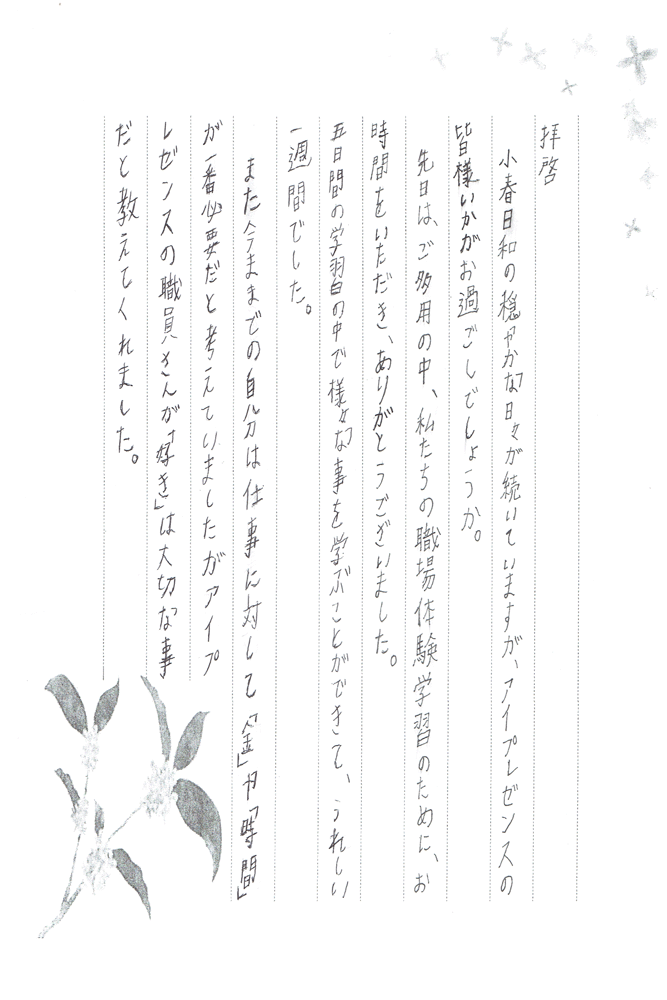 拝啓
小春日和の穏やかな日々が続いていますが、アイプレゼンスの
皆様いかがお過ごしでしょうか。
先日は、ご多用の中、私たちの職場体験学習のために、お
時間をいただき、ありがとうございました。
五日間の学習の中で様々な事を学ぶことができて、うれしい
一週間でした。
また今までの自分は仕事に対して「金」や「時間」
が一番必要だと考えていましたがアイプ
レゼンスの職員さんが「好き」は大切な事
だと教えてくれました。